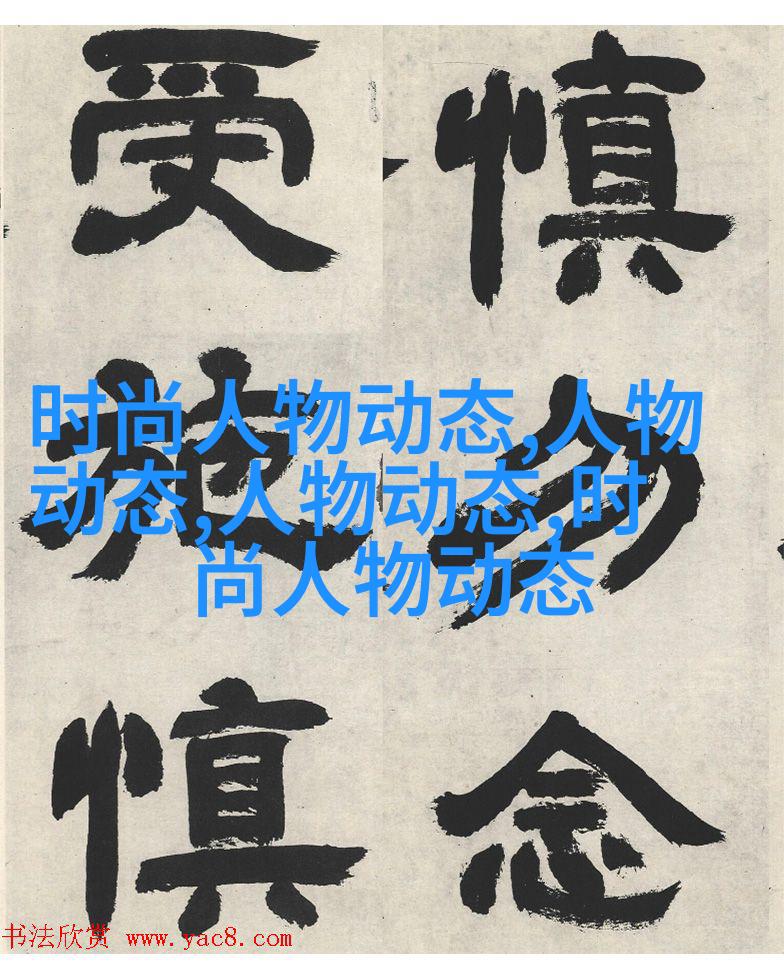 慎勿念
受施慎
时尚人物动态,人物
动态,人物动态,时
尚人物动态
书法欣赏 www.yac8.com